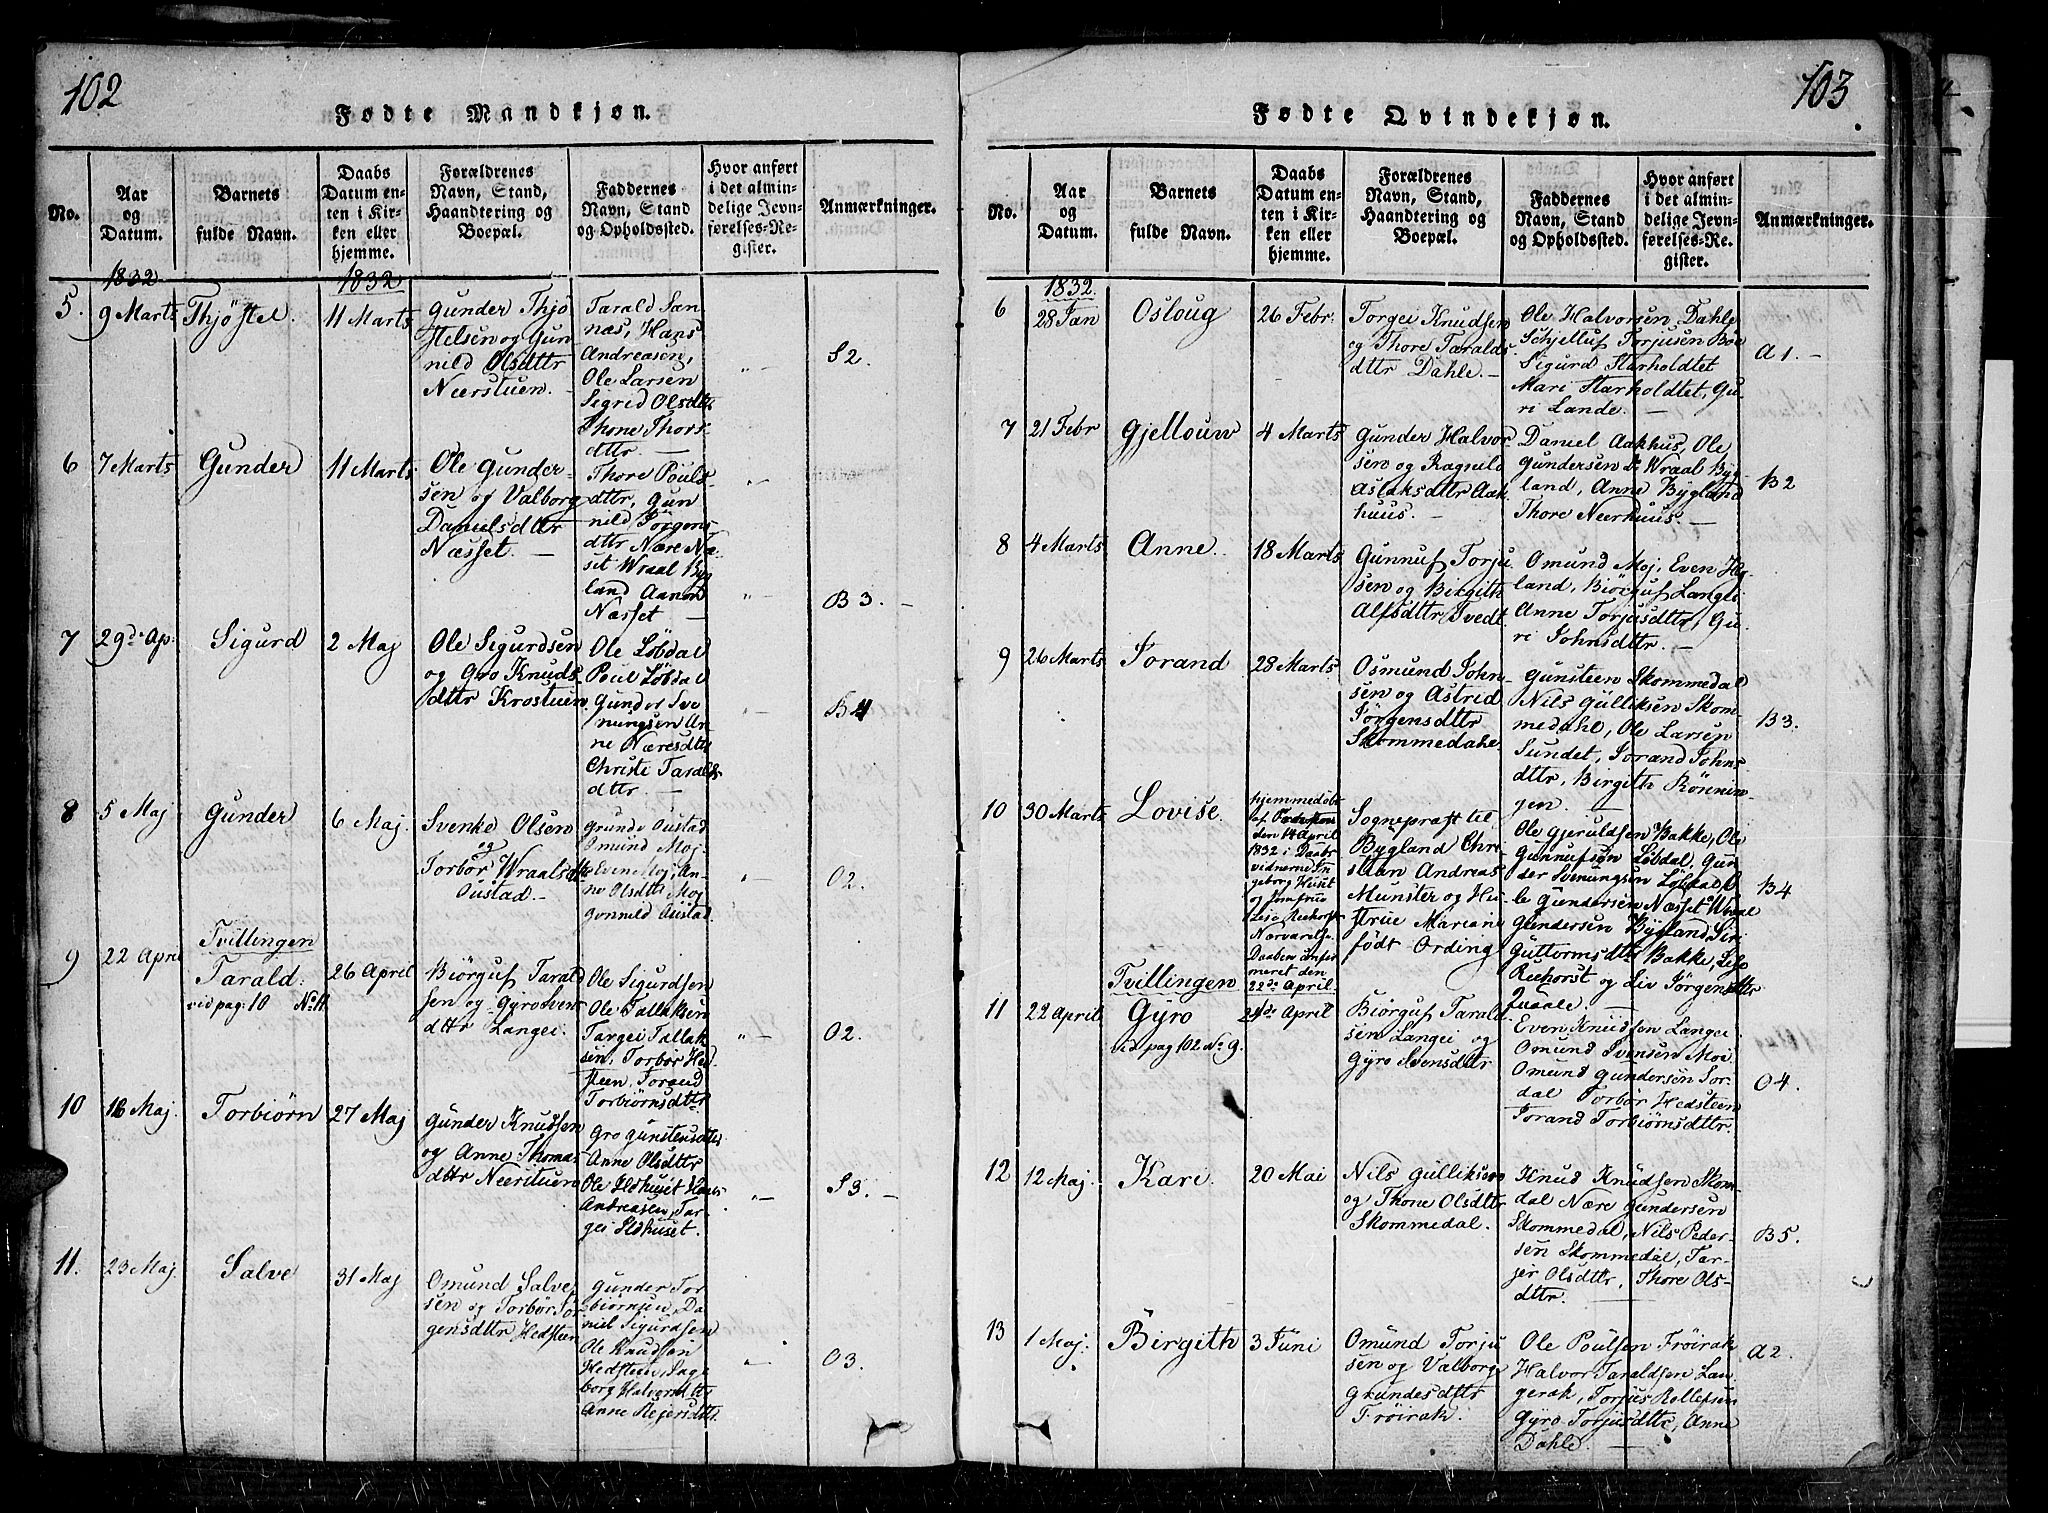 102
Fødte Mandkjøn.
No.
Aar
og
Datum.
Barnets
fulde Navn.
Daabs
Datum en-
ten i Kir-
ken eller
hjemme.
Forældrenes
Navn, Stand,
Haandtering og
Boepæl.
Faddernes
Navn, Stand
og Opholdssted.
Hvor anført
i det almin-
delige Jevn-
førelses-Re-
gister.
Anmærkninger.
1832
1832
5.
9 Marts
Thjöstel.
11 Marts
Gunder Thjö
stelsen og Gun
nild Olsdttr
Neerstuen.
Tarald San
næs, Hans
Andreasen,
Ole Larsen
Sigrid Olsdttr
Thone Thors-
dttr. —
" —
S2.
6
7 Marts
Gunder
11 Marts
Ole Gunder-
sen og Valborg
Danielsdttr
Næsset. —
Thore Pouls-
dttr, Gun
nild Jörgens
dttr Nære Næ
set Wraal Byg
land Aanon
Næsset —
" —
B 3. —
7
29de Ap:
Sigurd
2 Maj
Ole Sigurdsen
og Gro Knuds-
dttr Krostuen
Ole Löbdal
Poul Löbdal
Gunder Sve
nungsen An
ne Næresdttr
Christi Taralds
dttr. —
" —
B4
8
5 Maj
Gunder
6 Maj.
Svenke Olsen
og
Torbör Wraalsdttr
Oustad. —
Grunde Oustad
Omund Moj
Even Moj, An-
ne Olsdttr Moj
Gonnild Oustad.
" —
O2.
9
22 April
Tvillingen
Tarald:
vid pag: 10 No 11.
26 April
Biörguf Tarald
sen og Gyro Sven
dttr Langei.
Ole Sigurdsen
Ole Tallaksen
Targei Tallak
sen, Torbör Hed
steen, Torand
Torbiörnsdttr
" —
O2.
10
16 Maj.
Torbiörn
27 Maj
Gunder Knudsen
og Anne Thomas
dttr Neerstuen
Gro Gunstensdttr
Anne Olsdttr
Ole Ildhuset Hans
Andreasen, Tar-
gei Ildhuset.
" —
S3. —
11.
23 Maj.
Salve
31 Maj
Omund Salve
sen og Torbör Jör
gensdttr Hedsteen
Gunder Tor
biörnsen, Da
niel Sigurdsen
Ole Knudsen
Hedsteen, Inge
borg Halvorsdttr
Anne Rejersdttr.
" —
O3.
103
Fødte Qvindekjøn.
No.
Aar
og
Datum.
Barnets
fulde Navn.
Daabs
Datum en-
ten i Kir-
ken eller
hjemme.
Forældrenes
Navn, Stand,
Haandtering og
Boepæl.
Faddernes
Navn, Stand
og Opholdssted.
Hvor anført
i det almin-
delige Jevn-
førelses-Re-
gister.
Anmærkninger.
1832.
6
28 Jan
Osloug
26 Febr.
Torgei Knudsen
og Thore Taralds-
dttr Dahle. —
Ole Halvorsen Dahle
Schjelluf Torjusen Böe
Sigurd Starholdtet
Mari Starholdtet, Gu-
ri Lande. —
A 1. —
7
21 Febr
Gjellouw
4 Marts
Gunder Halvor
sen og Ragnild
Aslaksdttr Aak
huus. —
Daniel Aakhus, Ole
Gundersen do Wraal Byg
land, Anne Bygland
Thore Neerhuus. —
B2
8
4 Marts
Anne.
18 Marts
Gunnuf Torju
sen og Birgith
Alfsdttr Tvedt
Omund Moj, Even Hæg-
land, Biörguf Langei
Anne Torjusdttr, Gu-
ri Johnsdttr. —
9
26 Marts
Jorand
28 Marts
Osmund John-
sen og Astrid
Jörgensdttr
Skommedahl
Gunsteen Skommedal
Nils Gulliksen Skom-
medahl, Ole Larsen
Sundet, Jorand Johns
dttr, Birgith Rönnin-
gen. —
B3.
10
30 Marts
Lovise.
hjemmedöbt
den 14 April
1832
22de April.
Sognepræst til
Bygland Chri-
stian Andreas
Munster og Hu
strue Mariane
född Ording
Ole Gjeruldsen Bakke, Ole
Gunnufsen Löbdal, Gun
der Svenungsen Löbdal, O
le Gundersen Næsset Wraal
Gundersen Bygland, Siri
Guttormsdttr Bakke, Lise
Reehorst og Liv Jörgensdttr
Qvaale —
B4
11
22 April
Tvillingen
Gyro
vid pag 102 No 9.
24de April
Biörguf Tarald
sen Langei og
Gyro Svensdttr
Even Knudsen Langei
Omund Svensen Moi
Omund Gundersen Sor-
dal Torbör Hedsteen
Torand Torbiörnsdttr.
O4.
12
12 Maj.
Kari.
20 Mai
Nils Gulliksen
og Thone Olsdttr
Skommedal.
Knud Knudsen Skom-
dal Nære Gundersen
Skommedal, Nils Peder-
sen Skommedal, Tar-
jer Olsdttr, Thore Ols-
dttr. —
B5.
13
1 Maj.
Birgith
3 Juni
Omund Torju
sen og Valborg
Grundesdttr
Fröirak.
Ole Poulsen Fröirak
Halvor Taraldsen Lan
gerak, Torjus Rollefsen
Gyro Torjusdttr, Anne
Dahle. —
A2.